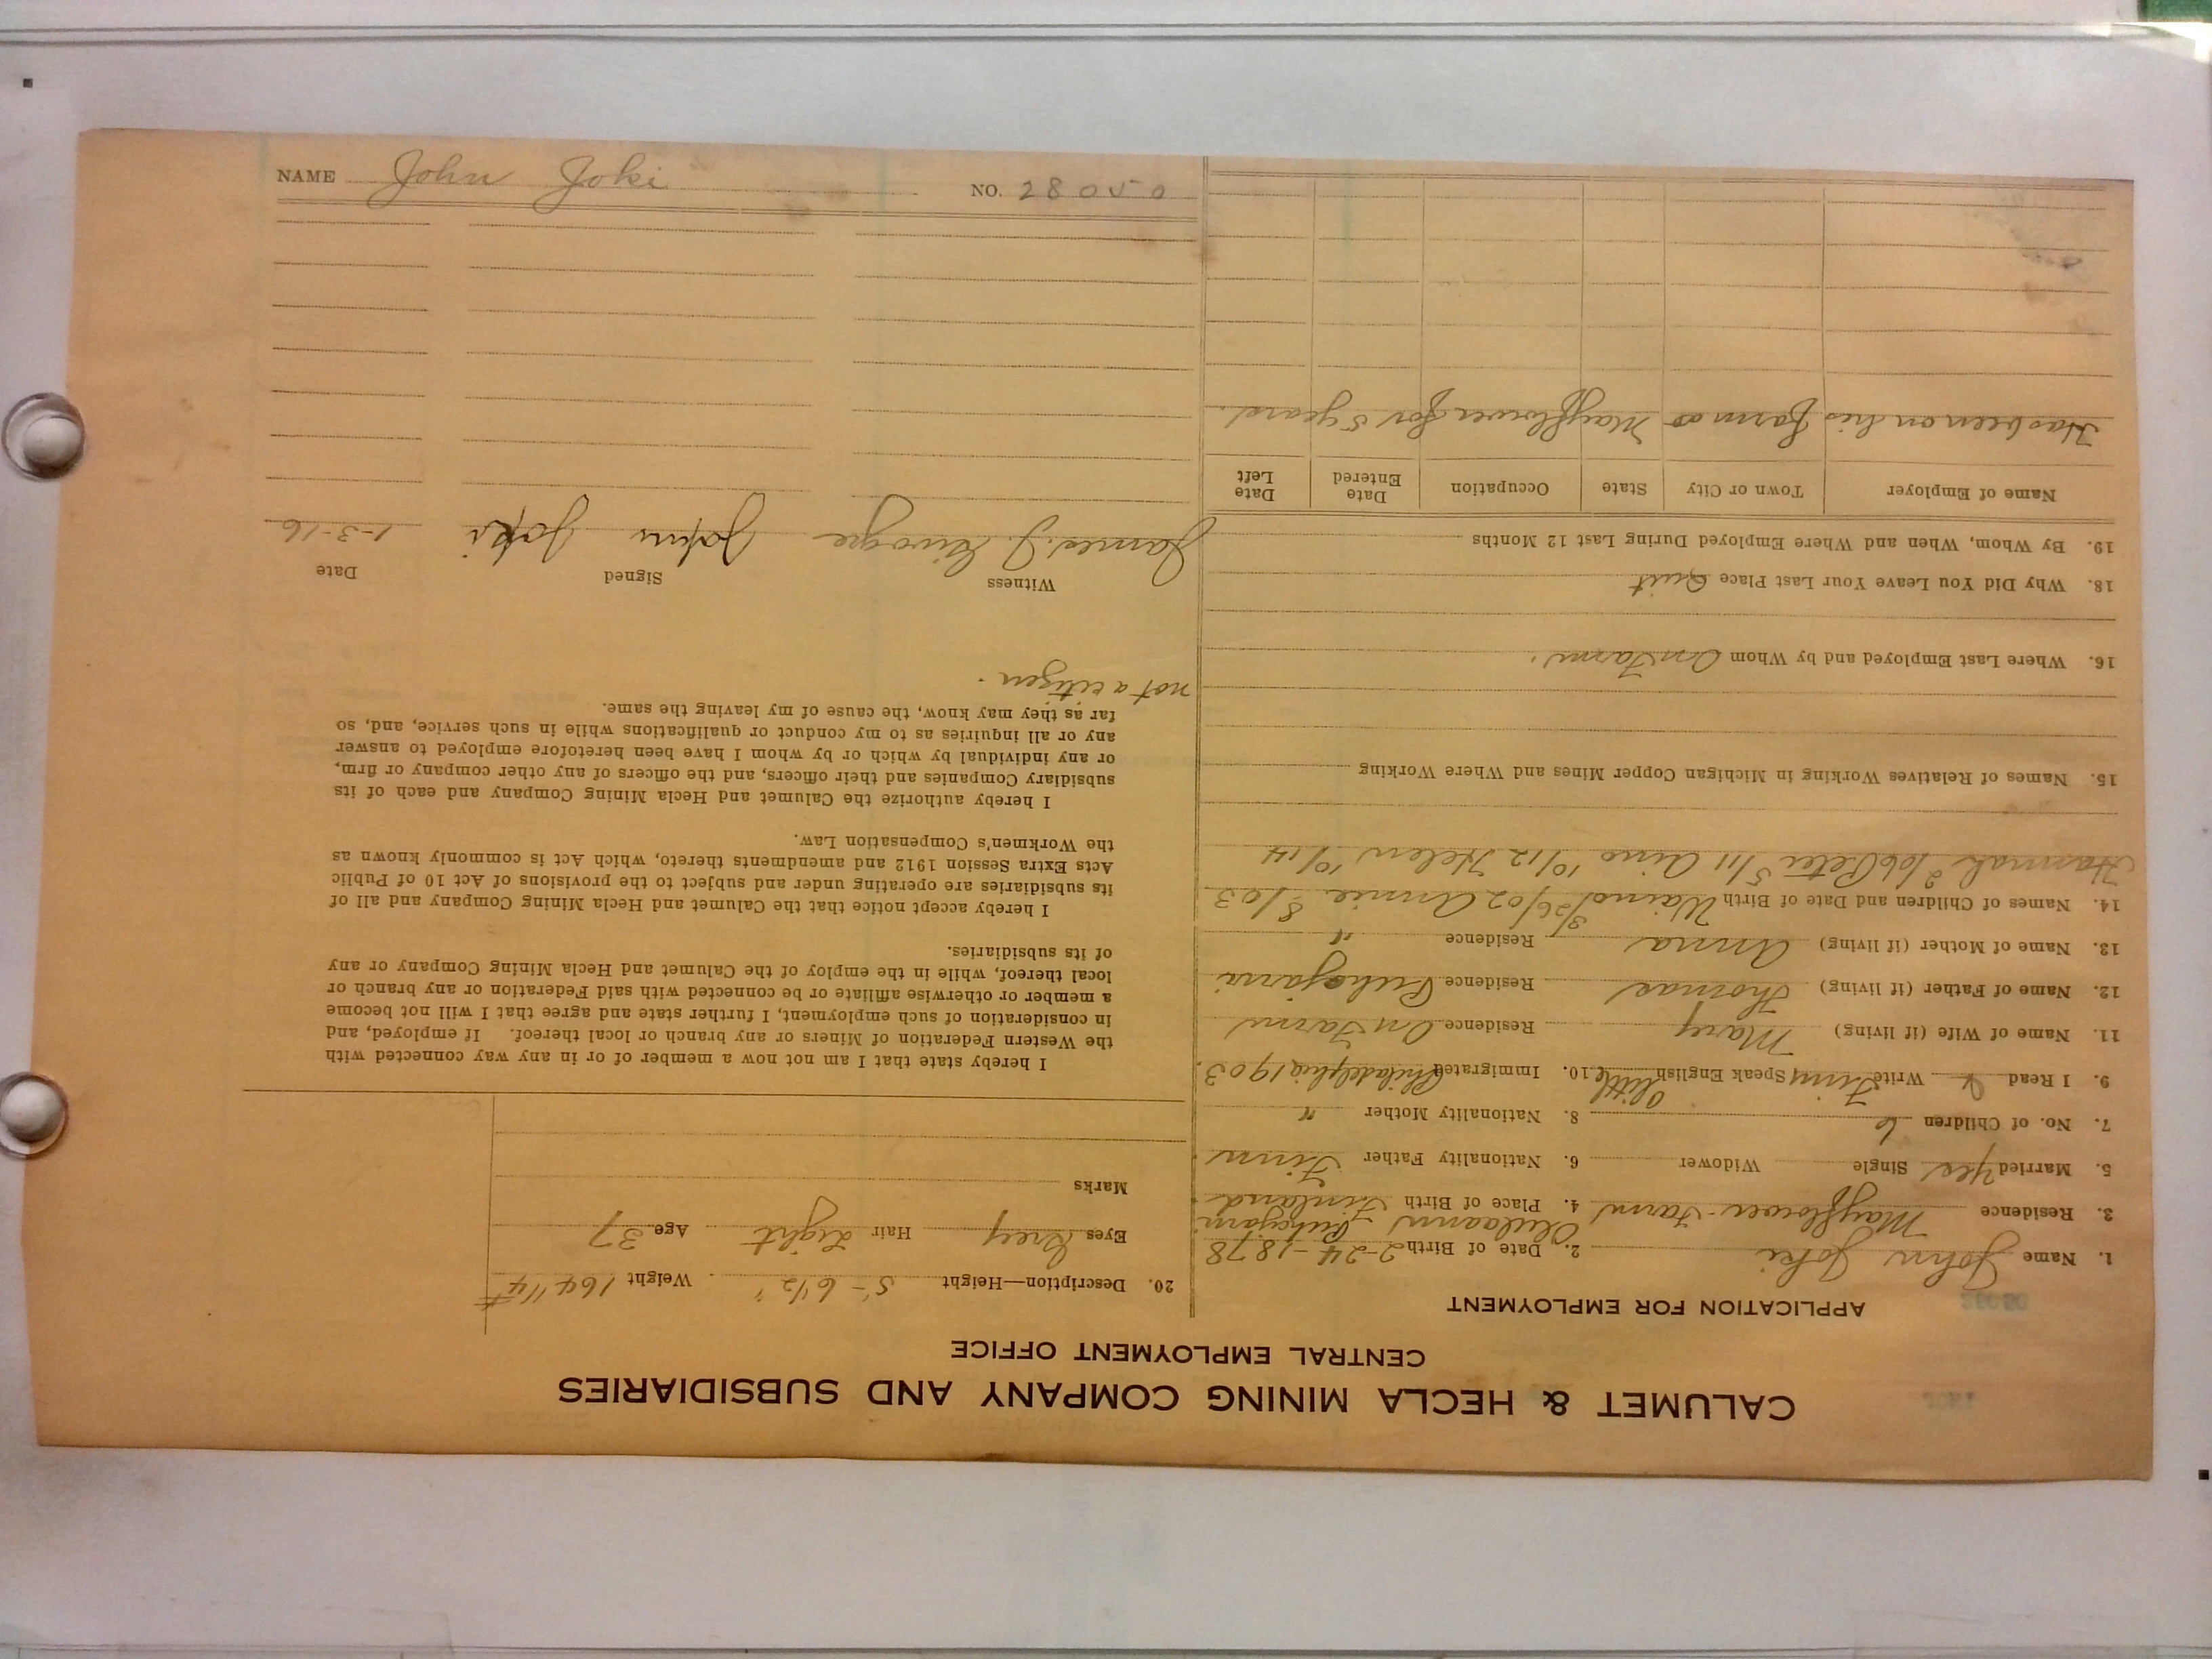 CALUMET & HECLA MINING COMPANY AND SUBSIDIARIES
CENTRAL EMPLOYMENT OFFICE
APPLICATION FOR EMPLOYMENT
1. Name John Joki 2. Date of Birth 2-24-1878
3. Residence Mayflower Farm 4. Place of Birth Finland
5. Married Yes Single Widower 6. Nationality Father Finn
7. No. of Children 6 8. Nationality Mother "
9. I Read & Write Finn Speak English little 10. Immigrated Philadelphia 1903.
11. Name of Wife (if living) Mary Residence On Farm
12. Name of Father (if living) Thomas Residence
13. Name of Mother (if living) Anna Residence "
14. Names of Children and Date of Birth Waino 3/26/02 Annie 8/03
Hannah 2/06 Peter 5/11 Aino 10/12 Helen 10/14
15. Names of Relatives Working in Michigan Copper Mines and Where Working
16. Where Last Employed and by Whom On Farm.
18. Why Did You Leave Your Last Place Quit
19. By Whom, When and Where Employed During Last 12 Months
Name of Employer Town or City State Occupation Date Entered Date Left
Has been on his farm at Mayflower for 5 years.
20. Description—Height 5-6 1/2" Weight 164 1/4 #
Eyes Grey Hair Light Age 37
Marks
I hereby state that I am not now a member of or in any way connected with
the Western Federation of Miners or any branch or local thereof. If employed, and
in consideration of such employment, I further state and agree that I will not become
a member or otherwise affiliate or be connected with said Federation or any branch or
local thereof, while in the employ of the Calumet and Hecla Mining Company or any
of its subsidiaries.
I hereby accept notice that the Calumet and Hecla Mining Company and all of
its subsidiaries are operating under and subject to the provisions of Act 10 of Public
Acts Extra Session 1912 and amendments thereto, which Act is commonly known as
the Workmen's Compensation Law.
I hereby authorize the Calumet and Hecla Mining Company and each of its
subsidiary Companies and their officers, and the officers of any other company or firm,
or any individual by which or by whom I have been heretofore employed to answer
any or all inquiries as to my conduct or qualifications while in such service, and, so
far as they may know, the cause of my leaving the same.
not a citizen.
Witness Signed Date
James J. John Joki 1-3-16
NAME John Joki NO. 28050